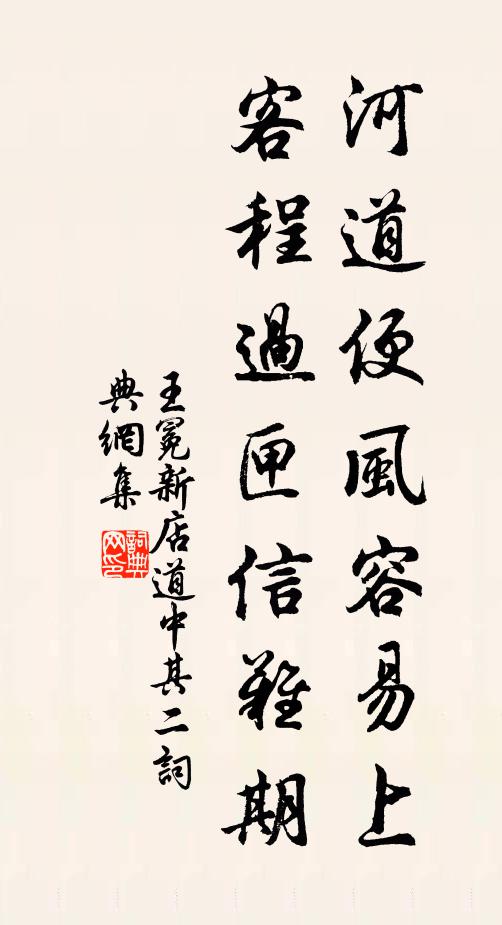 河道便風容易上
客程過匣信難期
王冕新店道中其二詞
典網集
詞典
网印